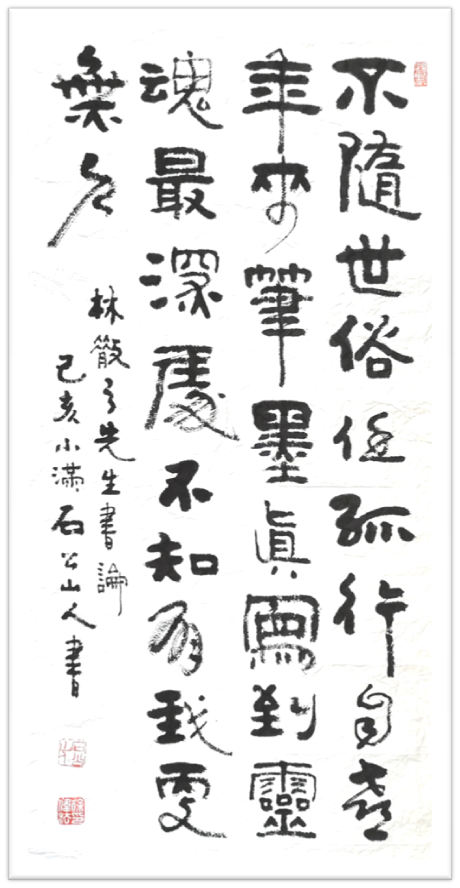 不隨世俗任孤行自喜
年來筆墨眞寫到靈
魂最深處不知有我更
無人
林散之先生書論
己亥小滿石公山人書